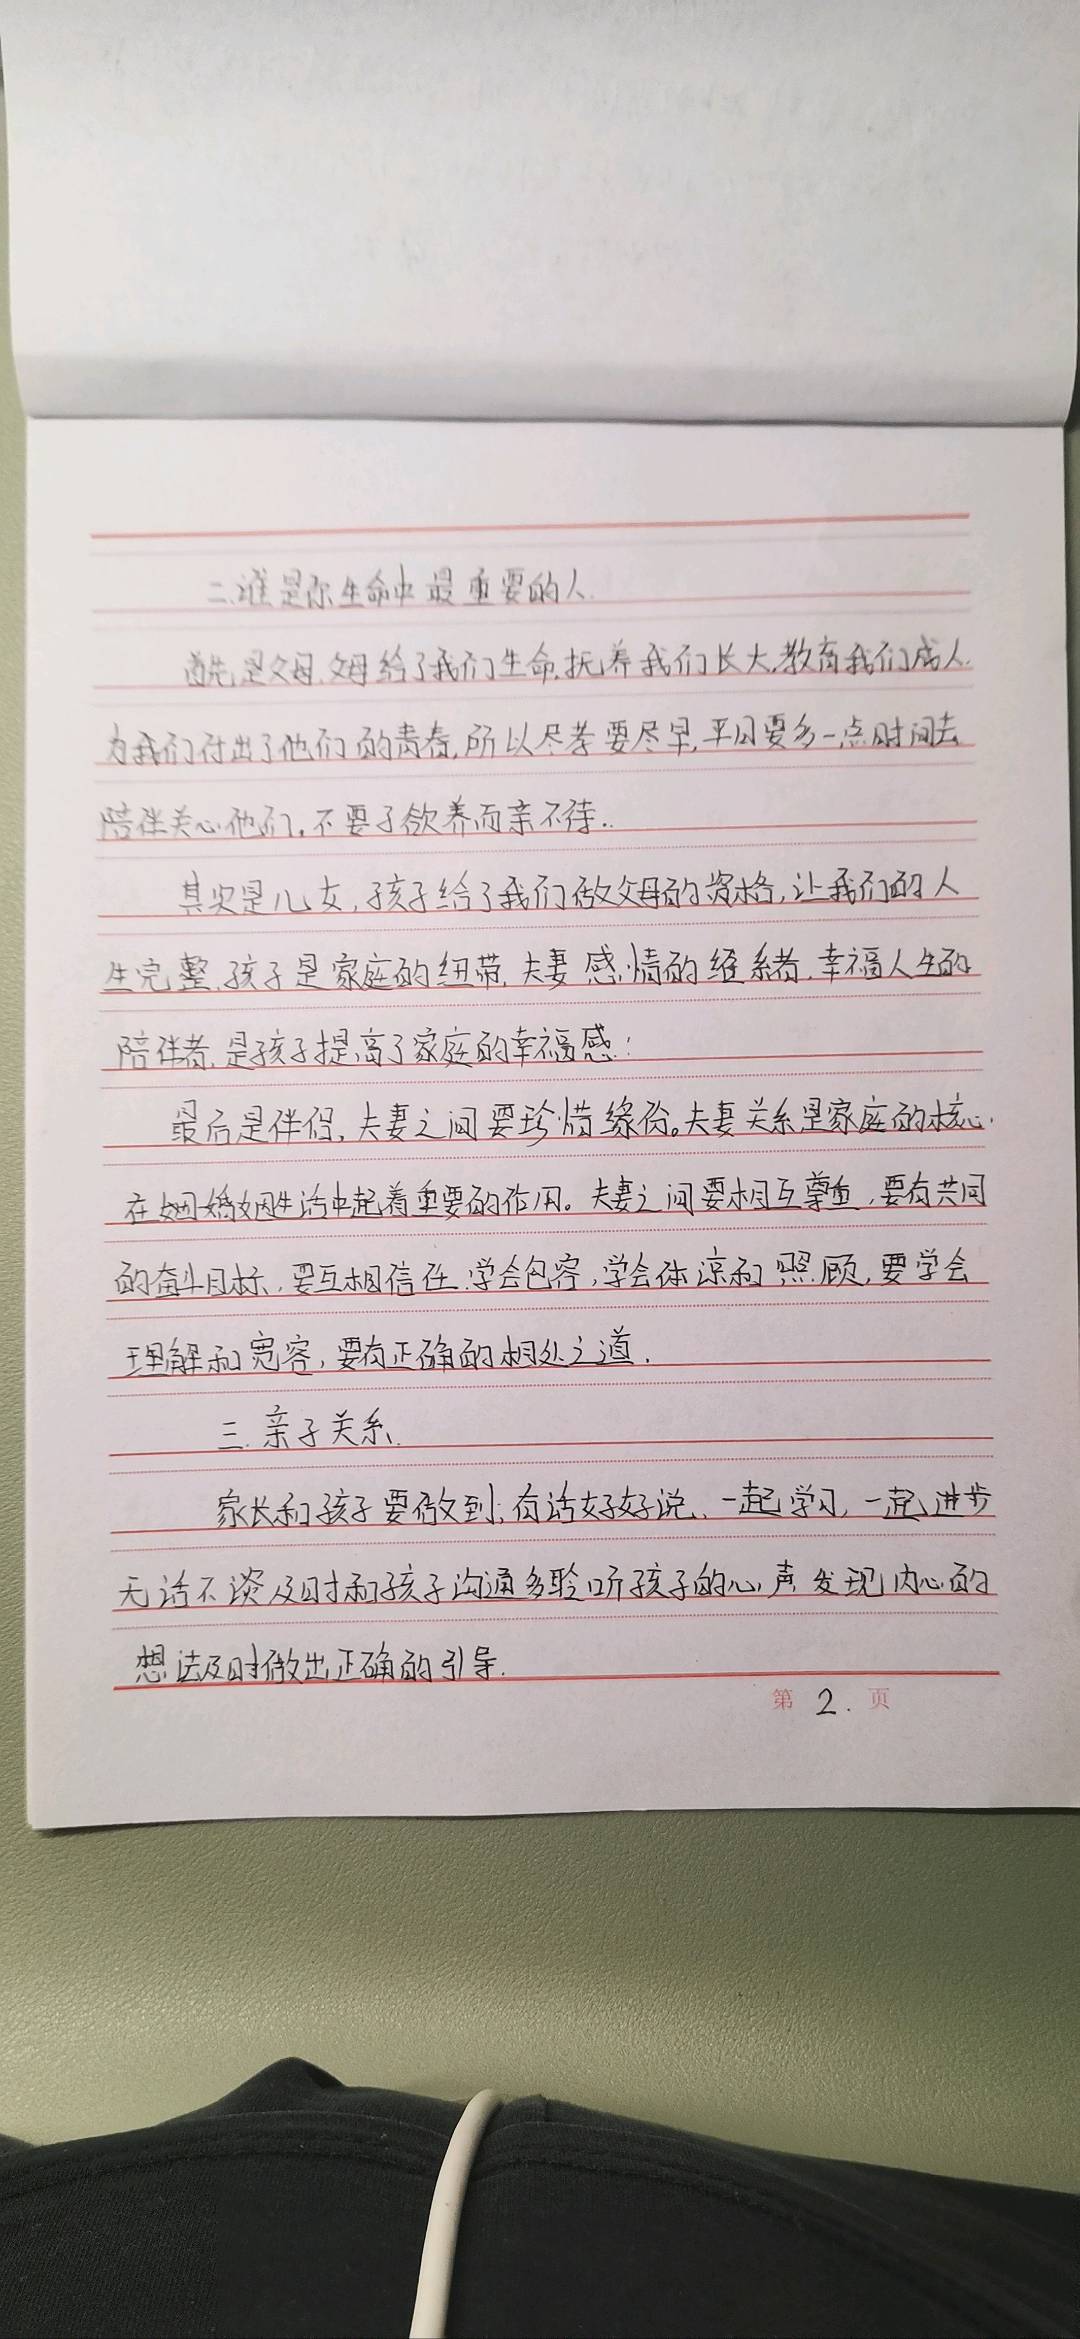 二.谁是你生命中最重要的人.
首先是父母.父母给了我们生命.抚养我们长大.教育我们成人.
为我们付出了他们的青春,所以尽孝要尽早,平日要多一点时间去
陪伴关心他们。不要子欲养而亲不待..
其次是儿女,孩子给了我们做父母的资格,让我们的人
生完整.孩子是家庭的纽带.夫妻感情的维系者.幸福人生的
陪伴者.是孩子提高了家庭的幸福感!
最后是伴侣,夫妻之间要珍惜缘份。夫妻关系是家庭的核心.
在婚姻生活中起着重要的作用。夫妻之间要相互尊重,要有共同
的奋斗目标,要互相信任.学会包容,学会体谅和照顾,要学会
理解和宽容,要有正确的相处之道.
三.亲子关系.
家长和孩子要做到:有话好好说、一起学习,一起进步
无话不谈及时和孩子沟通多聆听孩子的心声发现内心的
想法及时做出正确的引导.
第2.页